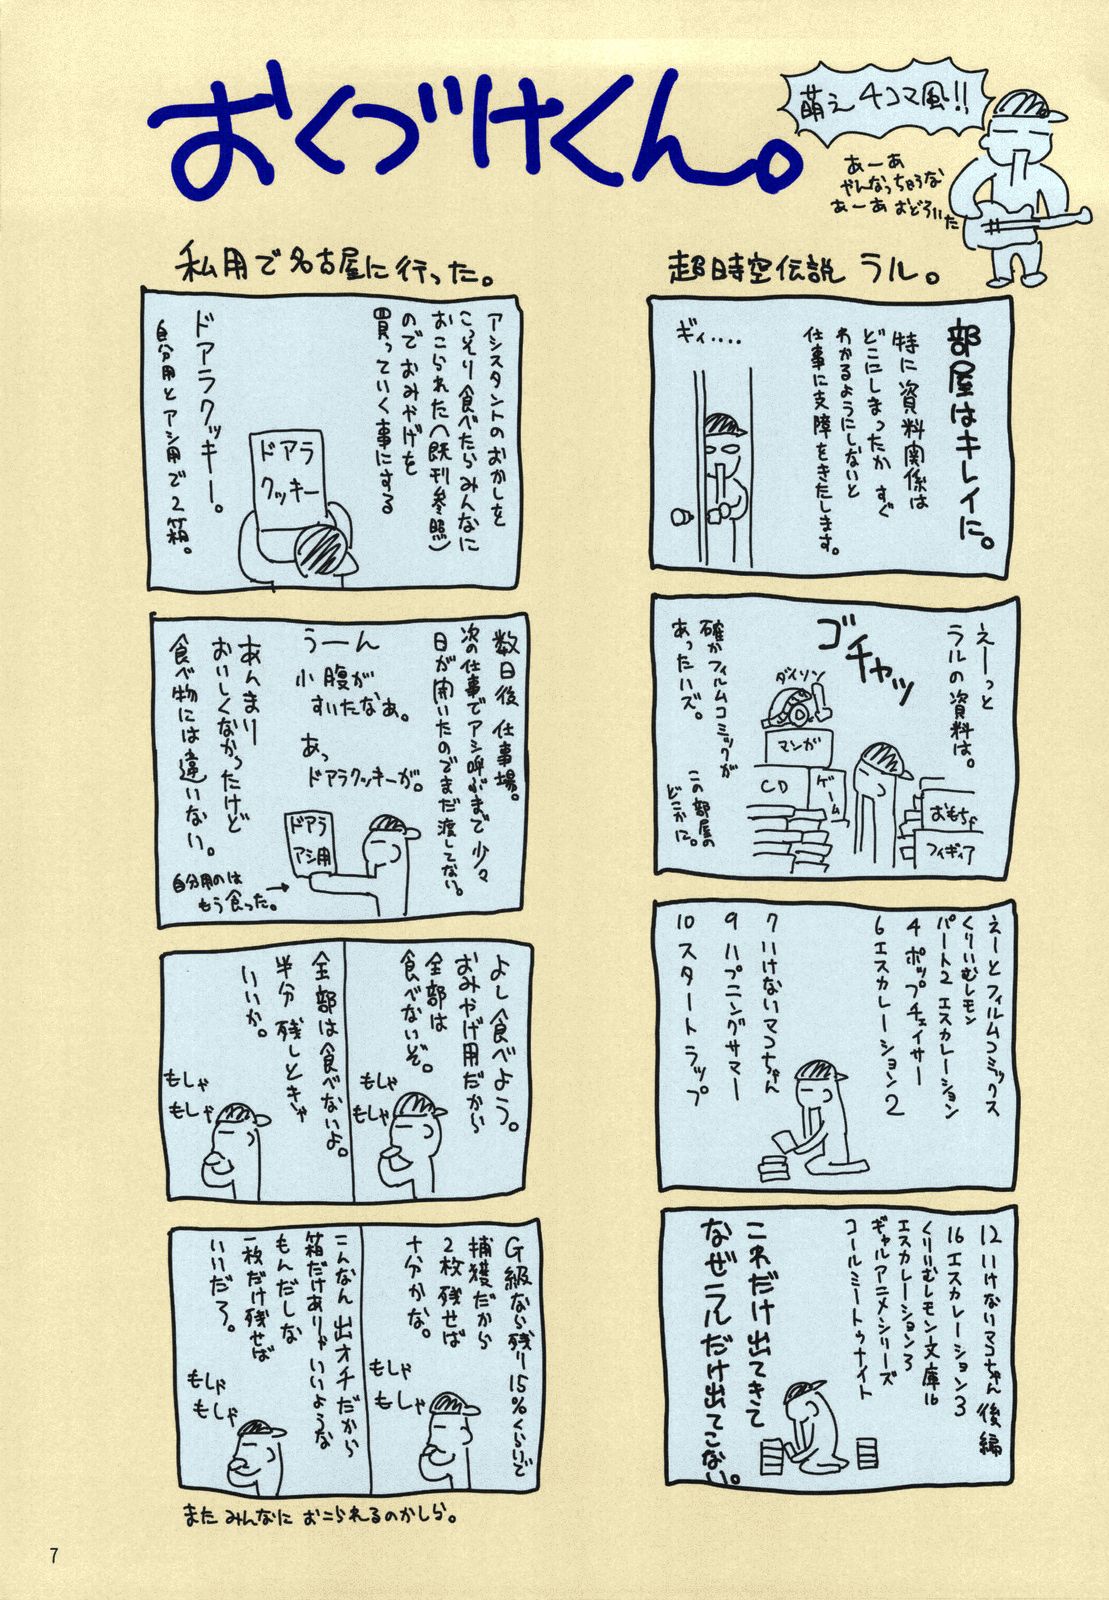 おくづけくん。
萌え4コマ風!!
あーあ
やんなっちゃうな
あーあ おどろいた
超時空伝説 ラル。
部屋はキレイに。
特に資料関係は
どこにしまったか すぐ
わかるようにしないと
仕事に支障をきたします。
ギィ....
えーっと
ラルの資料は。
ゴチャッ
ダイソン
マンガ
CD
ゲーム
おもちゃ
フィギィア
確かフィルムコミックが
あったハズ。
この部屋の
どこかに。
えーとフィルムコミックス
くりいむレモン
パート2 エスカレーション
4 ポップチェイサー
6 エスカレーション2
7 いけないマコちゃん
9 ハプニングサマー
10 スタートラップ
12 いけないマコちゃん 後編
16 エスカレーション3
くりいむレモン文庫16
エスカレーション3
ギャルアニメシリーズ
コールミートゥナイト
これだけ出てきて
なぜラルだけ出てこない。
私用で名古屋に行った。
アシスタントのおかしを
こっそり食べたらみんなに
おこられた(既刊参照)
ので おみやげを
買っていく事にする
ドアラ
クッキー
ドアラクッキー。
自分用とアシ用で2箱。
数日後 仕事場。
次の仕事でアシ呼ぶまで少々
日が開いたのでまだ渡してない。
うーん
小腹が
すいたなあ。
あっ
ドアラクッキーが。
ドアラ
アシ用
あんまり
おいしくなかったけど
食べ物には違いない。
自分用のは
もう食った。
よし食べよう。
おみやげ用だから
全部は
食べないぞ。
もしゃ
もしゃ
全部は食べないよ。
半分 残しときゃ
いいか。
もしゃ
もしゃ
G級なら残り15%くらいで
捕獲だから
2枚残せば
十分かな。
もしゃ
もしゃ
こんなん 出オチだから
箱だけありゃいいような
もんだしな
一枚だけ残せば
いいだろ。
もしゃ
もしゃ
また みんなに おこられるのかしら。
7